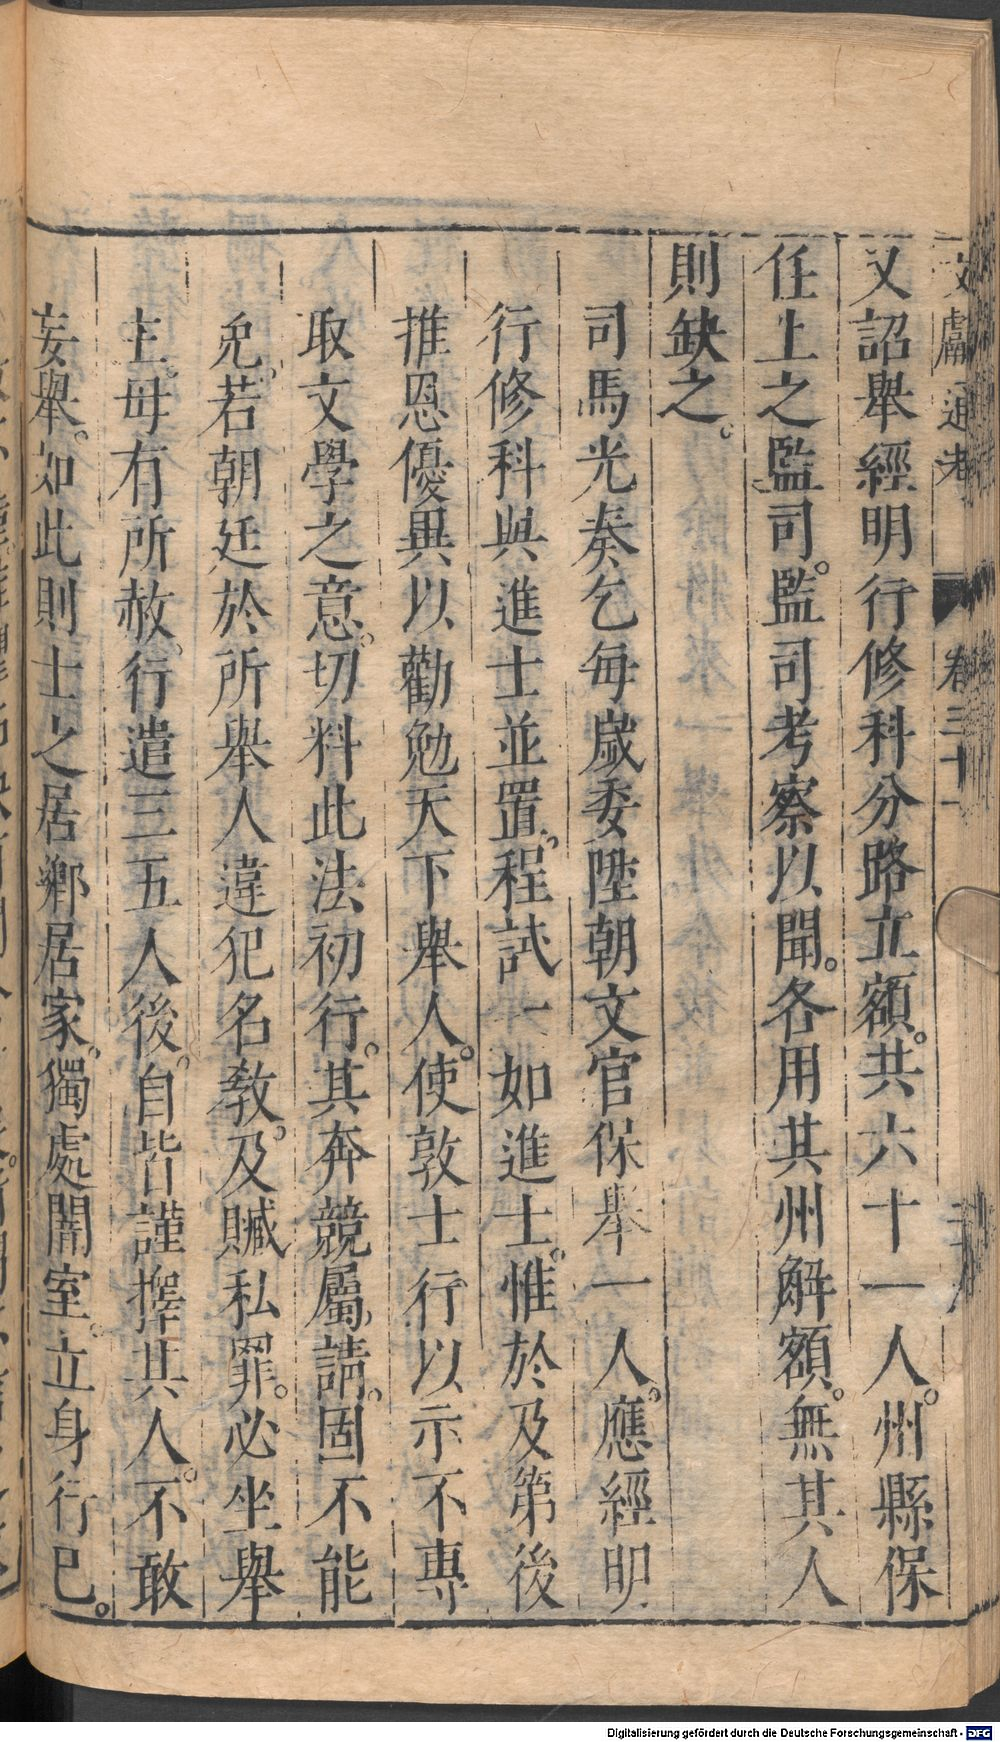 文獻通考 卷三十一
又詔舉經明行修科分路立額。共六十一人。州縣保
任上之監司。監司考察以聞。各用其州解額。無其人
則缺之。
司馬光奏乞每歲委陞朝文官保舉一人。應經明
行修科與進士並置。程試一如進士。惟於及第後
推恩優異以勸勉天下舉人。使敦士行以示不專
取文學之意。切料此法初行。其奔競屬請。固不能
免。若朝廷於所舉人違犯名敎。及贓私罪。必坐舉
主。毋有所赦。行遣三五人後。自皆謹擇其人。不敢
妄舉。如此則士之居鄉居家。獨處闇室。立身行己。
Digitalisierung gefördert durch die Deutsche Forschungsgemeinschaft - DFG